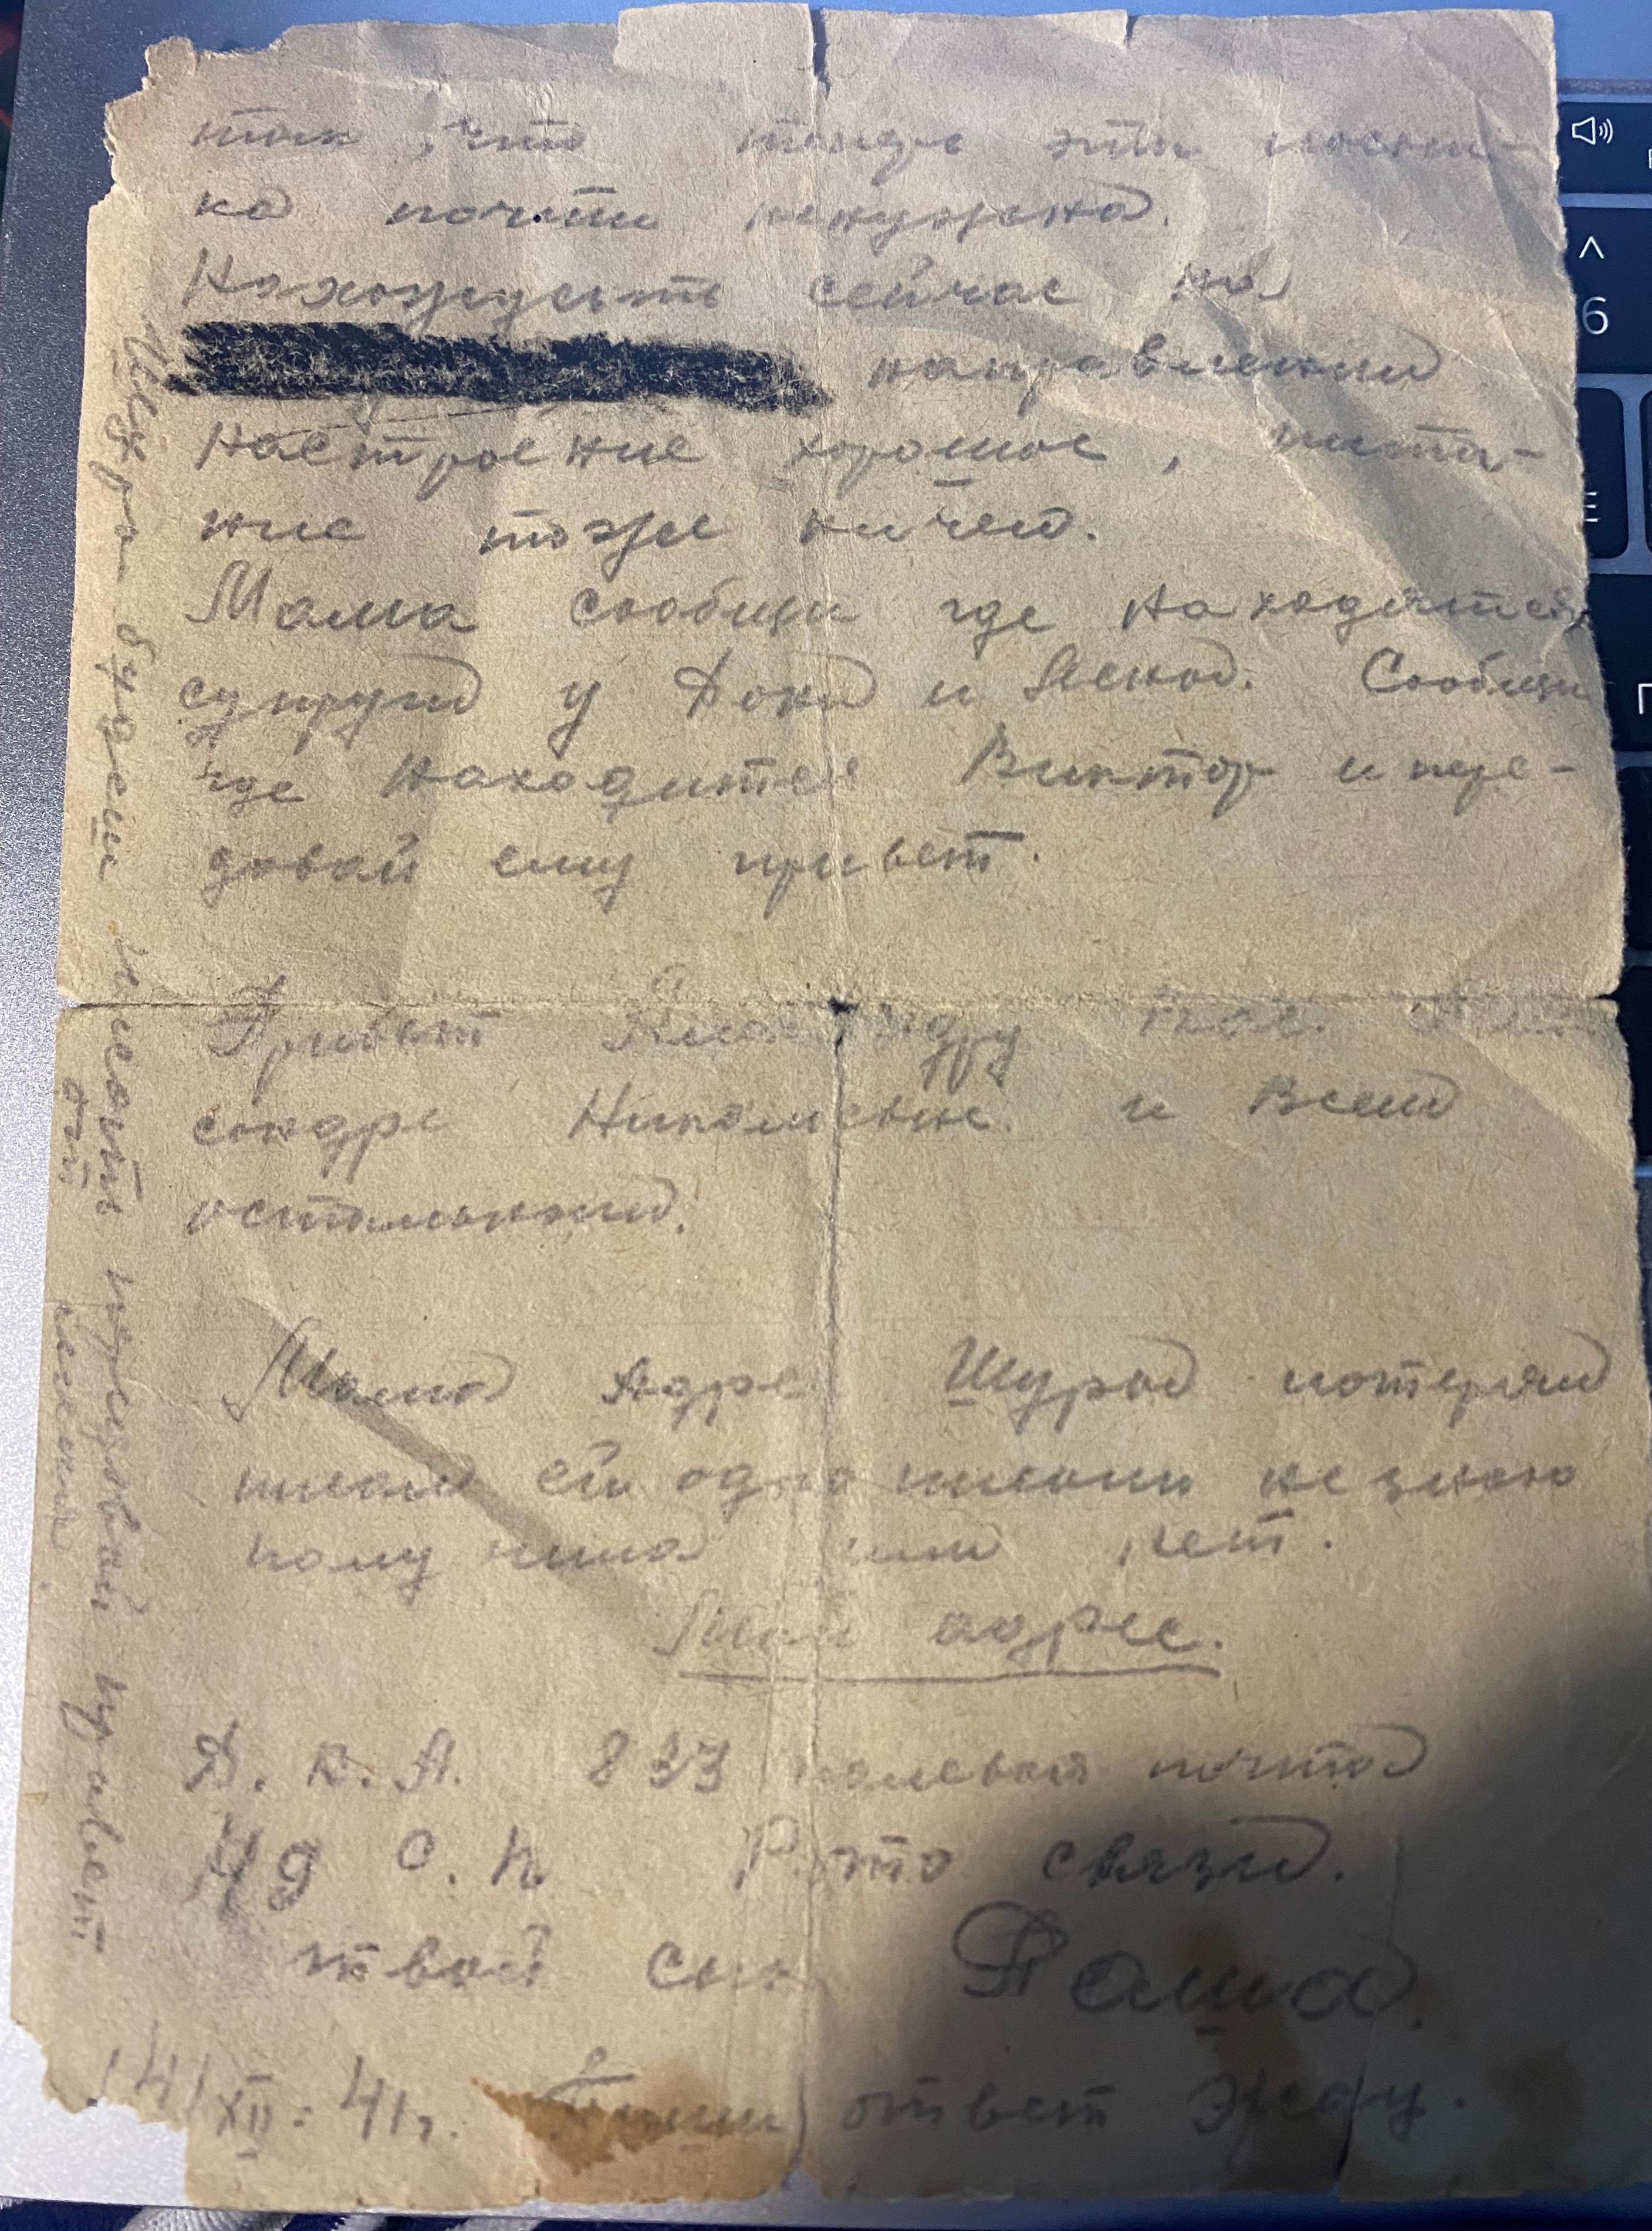 так, что теперь эта посыл-
ка почти ненужна.
Нахожусь сейчас на
направлении
настроение хорошое, пита-
ние тоже ничего.
Мама сообщи где находится
супруги у Дони и Лены. Сообщи
где находится Виктор и пере-
довай ему привет.
Привет Александру
сандре Николаевне. и всем
остальным.
Мама Адрес Шуры потерял
писал ей одно письмо не знаю
получила или нет.
Мой адрес.
Д.К.А. 833 полевая почта
49 С.П Рота связи.
твой сын Паша.
14/XII-41г. Пиши ответ жду.
Шура будеш писать передавай привет
от меня.